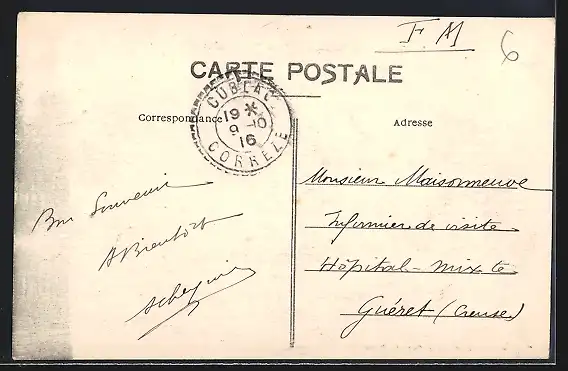 F M
6
CARTE POSTALE
CUBLAC
19 *
9-10
16
CORRÈZE
Correspondance
Adresse
Bon Souvenir
A Bientôt
Monsieur Maisonneuve
Infirmier de visite
Hôpital-mixte
Guéret (Creuse)